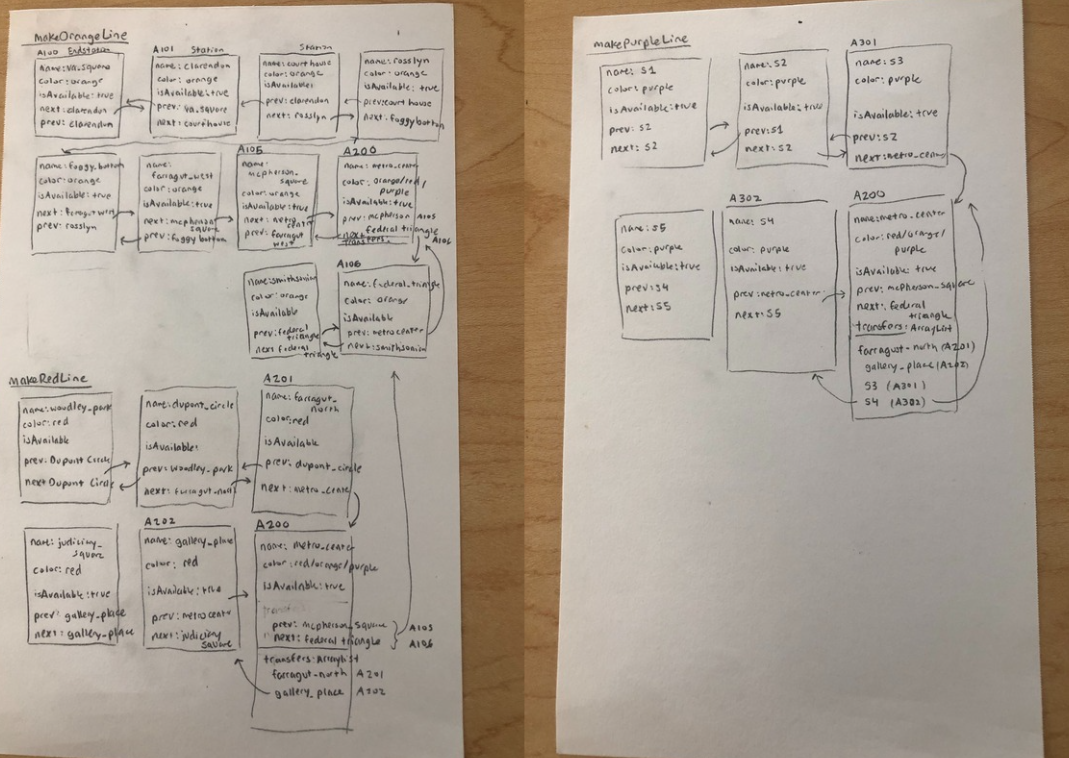 makeOrangeLine
A100 Endstation
name: va.square
color: orange
isAvailable: true
next: clarendon
prev: clarendon
A101 Station
name: clarendon
color: orange
isAvailable: true
prev: va.square
next: courthouse
Station
name: courthouse
color: orange
isAvailable:
prev: clarendon
next: rosslyn
name: rosslyn
color: orange
isAvailable: true
prev: court house
next: foggy bottom
name: foggy.bottom
color: orange
isAvailable: true
next: farragut west
prev: rosslyn
name:
farragut_west
color: orange
isAvailable: true
next: mcpherson
square
prev: foggy bottom
A105
name:
mcpherson_
square
color: orange
isAvailable: true
next: metro
center
prev: farragut
west
A200
name: metro_center
color: orange/red/
purple
isAvailable: true
prev: mcpherson A105
next: federal triangle A106
transfers:
name: smithsonian
color: orange
isAvailable
prev: federal
triangle
next federal
triangle
A106
name: federal_triangle
color: orange
isAvailable
prev: metrocenter
next: smithsonian
makeRedLine
name: woodley_park
color: red
isAvailable
prev: Dupont Circle
next: Dupont Circle
name: dupont_circle
color: red
isAvailable:
prev: woodley_park
next: farragut_north
A201
name: farragut_
north
color: red
isAvailable
prev: dupont_circle
next: metro_center
name: judiciary_
square
color: red
isAvailable: true
prev: gallery_place
next: gallery_place
A202
name: gallery_place
color: red
isAvailable: true
prev: metrocentr
next: judiciary
square
A200
name: metro_center
color: red/orange/purple
isAvailable: true
prev: mcpherson_square A105
next: federal triangle A106
transfers: ArrayList
farragut-north A201
gallery_place A202
makePurpleLine
name: S1
color: purple
isAvailable: true
prev: S2
next: S2
name: S2
color: purple
isAvailable: true
prev: S1
next: S2
A301
name: S3
color: purple
isAvailable: true
prev: S2
next: metro_center
name: S5
color: purple
isAvailable: true
prev: S4
next: S5
A302
name: S4
color: purple
isAvailable: true
prev: metro_center
next: S5
A200
name: metro_center
color: red/orange/
purple
isAvailable: true
prev: mcpherson_square
next: federal
triangle
transfers: ArrayList
farragut-north (A201)
gallery_place (A202)
S3 (A301)
S4 (A302)